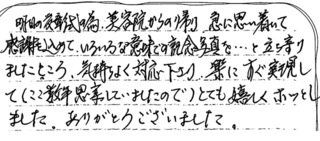 明日の定例会の為、美容院からの帰り 急に思い着いて
感謝を込めて、いろいろな意味での記念写真を…と立ち寄り
ましたところ、気持ちよく対応下さり、楽に すぐ実現し
て(ここ数年思案していましたので)とても嬉しく ホッとし
ました。ありがとうございました。